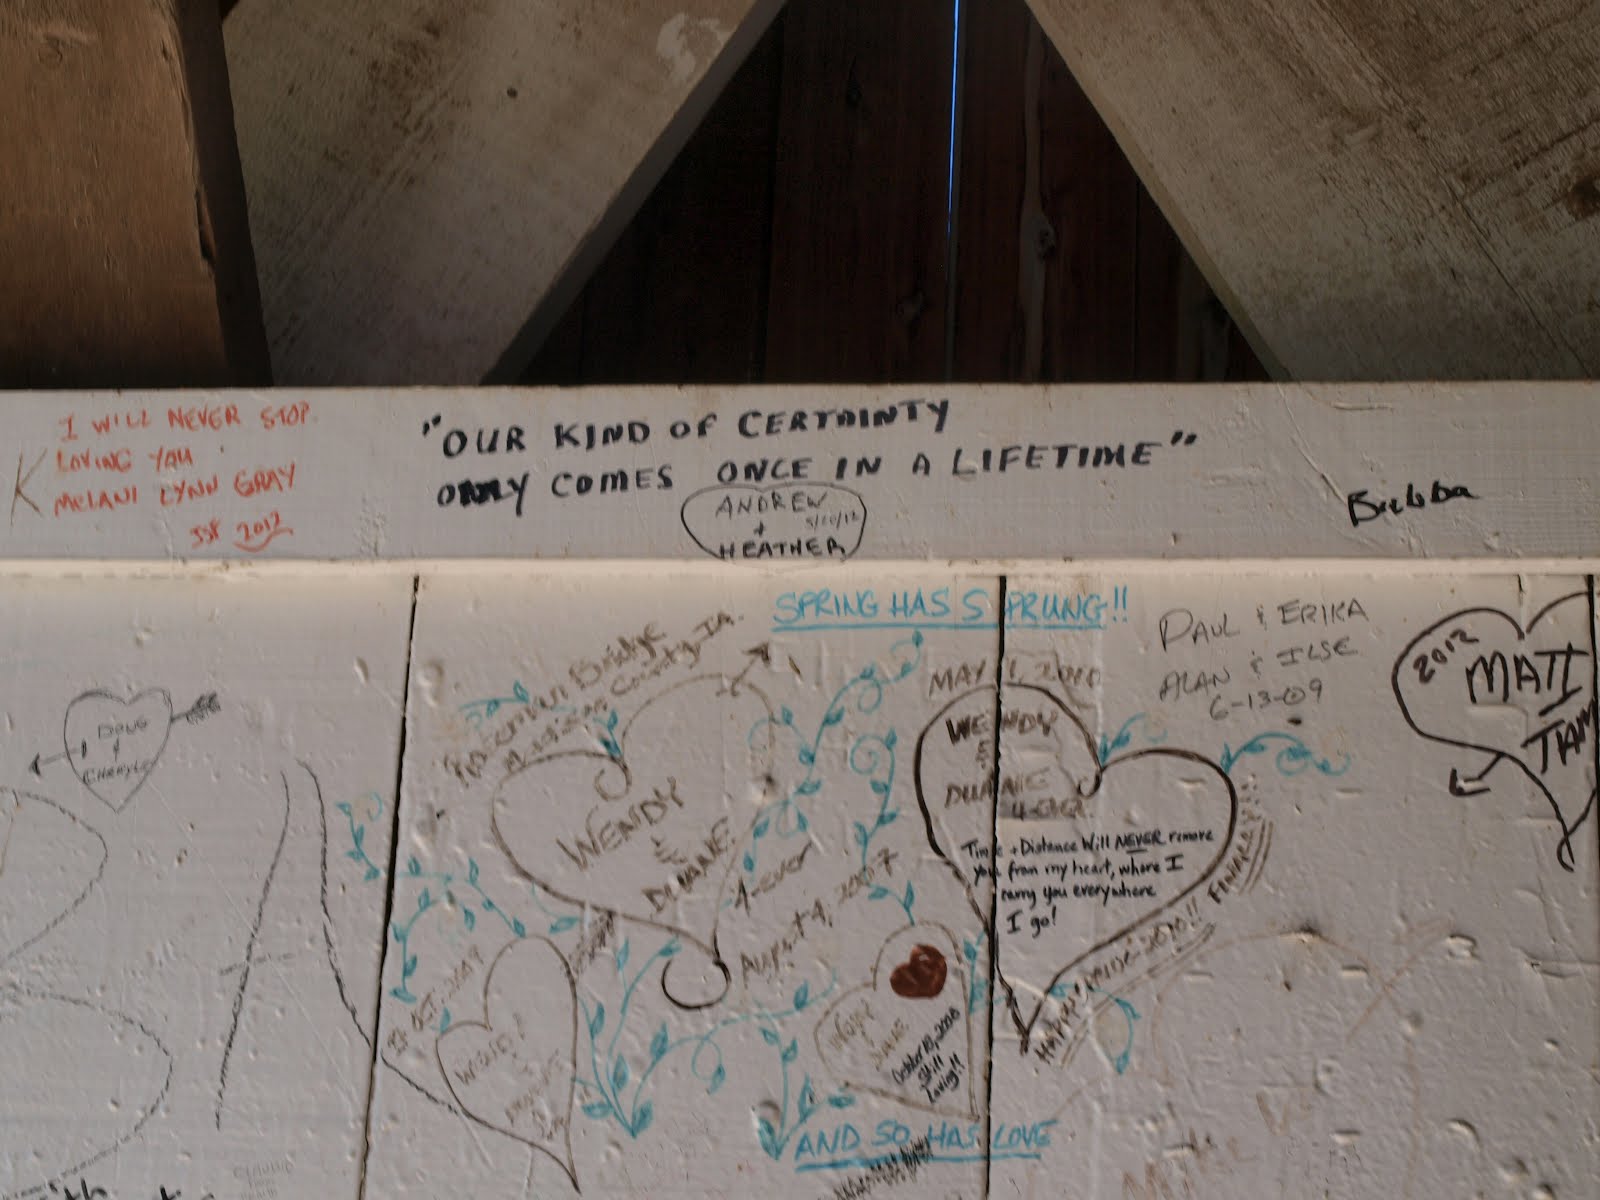 I WILL NEVER STOP.
LOVING YOU
MELANI LYNN GRAY
2012
K
"OUR KIND OF CERTAINTY
ONLY COMES ONCE IN A LIFETIME"
ANDREW
+
HEATHER
5/20/12
Bubba
SPRING HAS SPRUNG!!
MAY 1, 2010
PAUL & ERIKA
ALAN & ILSE
6-13-09
2012
MATT
DOUG
+
CHERYLE
Bridge
Madison County, IA.
WENDY
&
DUANE
4-ever
August 4, 2007
WENDY
DUANE
4-EVER
Time + Distance Will NEVER remove
you from my heart, where I
carry you everywhere
I go!
FINALLY!!!
2010!!
October 10, 2008
Still
Loving!!
AND SO HAS LOVE
CLAUDIO